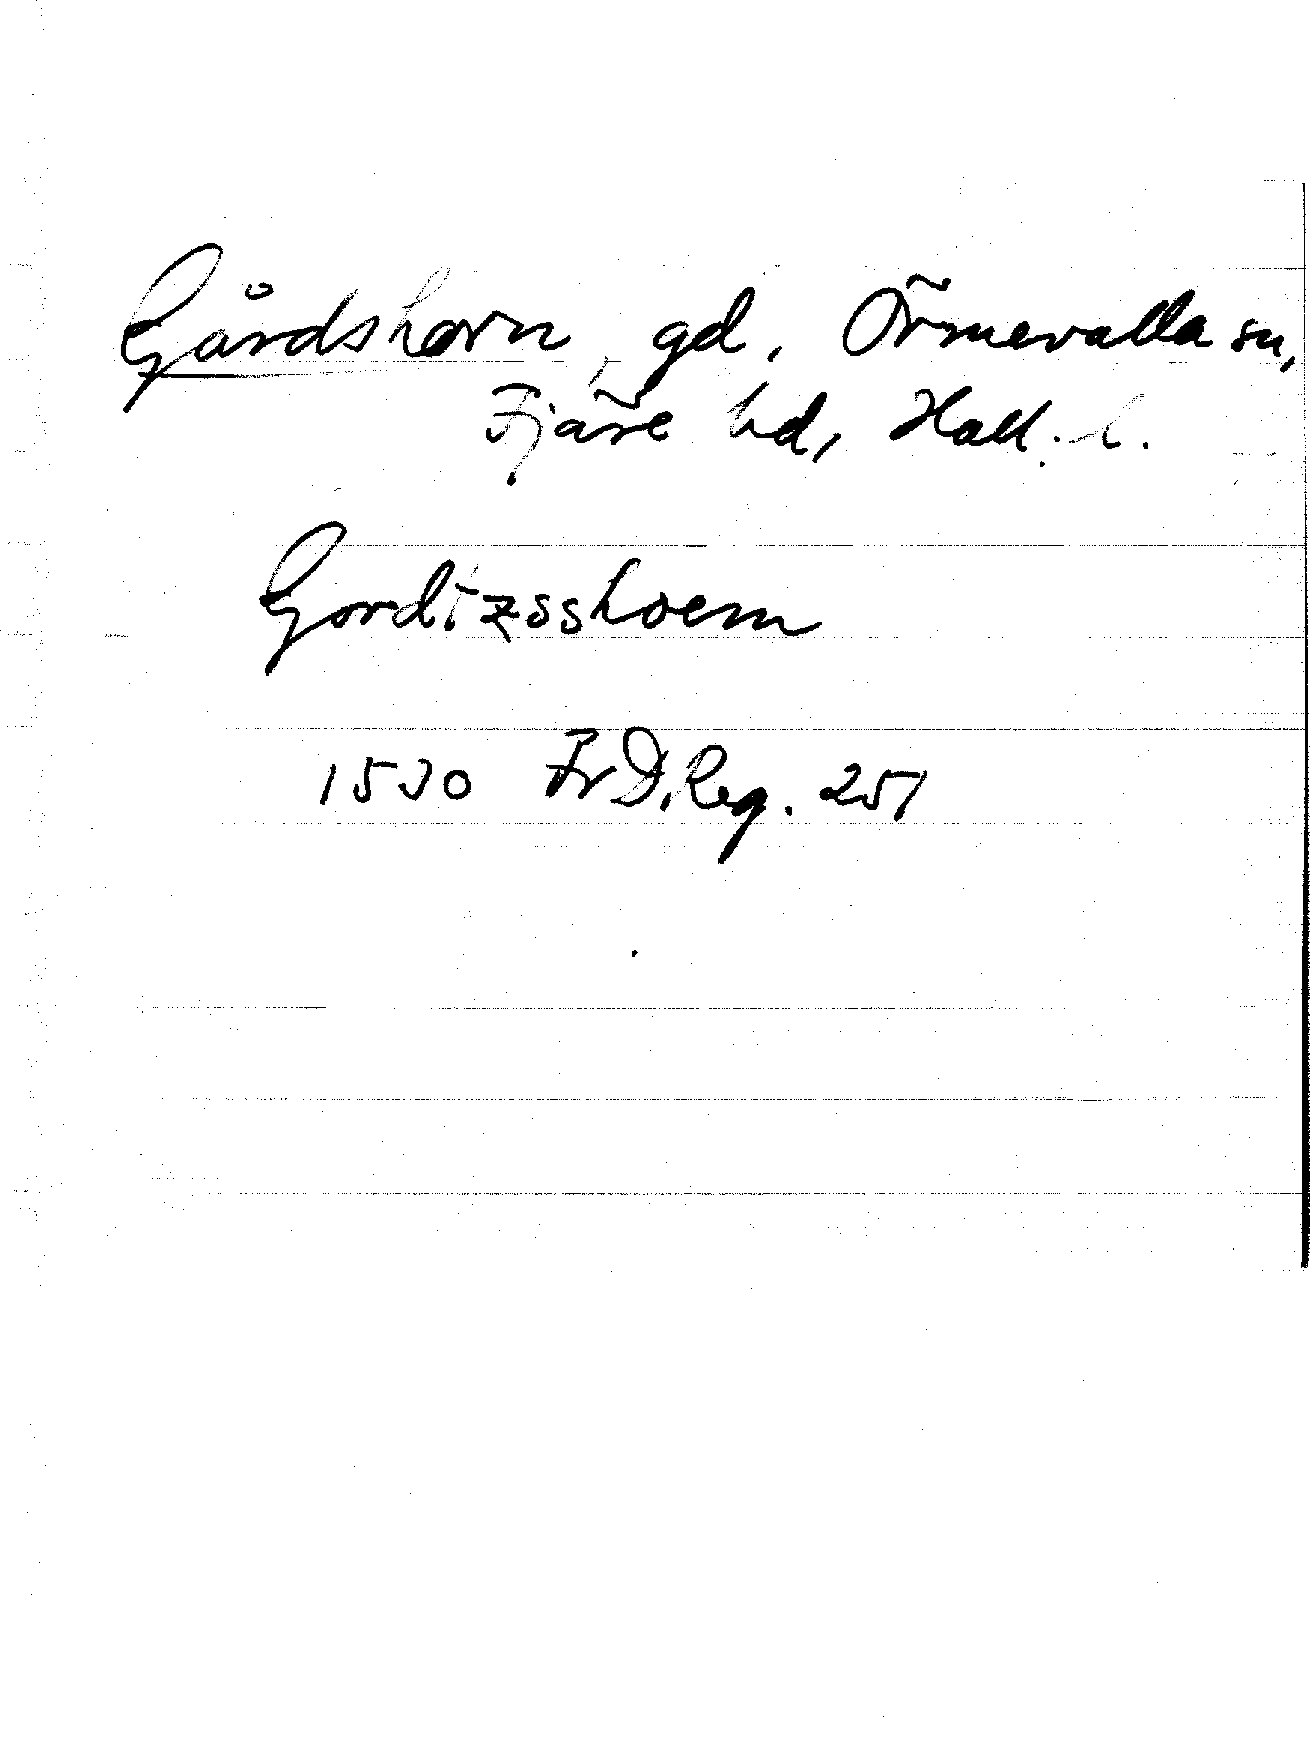 Gårdshorn, gd, Örmevalla sn,
Fjäre hd, Hall. l.
Gordtzsshoern
1530 Fr D. Reg. 251